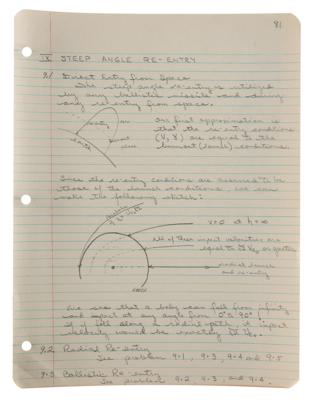 81
IX STEEP ANGLE RE-ENTRY
9.1 Direct Entry from Space
The steep angle re-entry is utilized
by any ballistic missile and during
any re-entry from space.
Our first approximation is
that the re-entry conditions
(V, γ) are equal to the
burnout (launch) conditions.
earth
Since the re-entry conditions are assumed to be
those of the launch conditions, we can
make the following sketch:
V=0 @ h=∞
All of these impact velocities are
equal to or greater
radial launch
and re-entry
We see that a body can fall from infinity
and impact at any angle from 0° to 90°.
If it fell along a radial path, its impact
velocity would be exactly
9.2 Radial Re-entry
See problem 9.1, 9.3, 9.4 and 9.5
9.3 Ballistic Re-entry
See problem 9.2, 9.3, and 9.4.